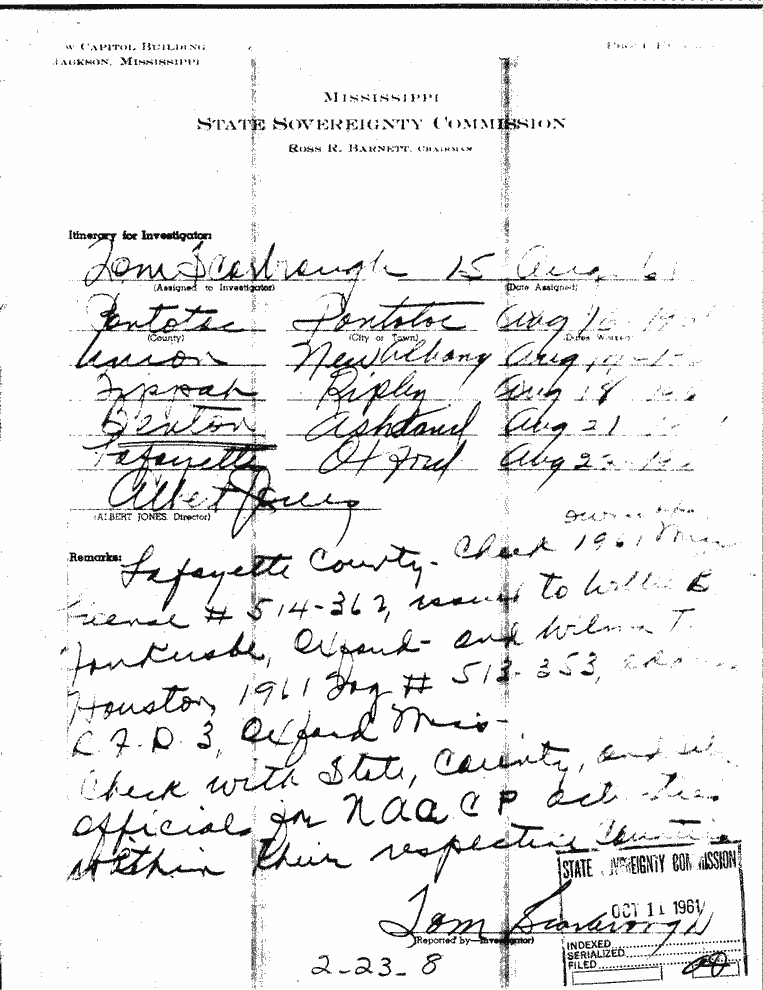 W CAPITOL BUILDING
JACKSON, MISSISSIPPI
MISSISSIPPI
STATE SOVEREIGNTY COMMISSION
ROSS R. BARNETT, CHAIRMAN
Itinerary for Investigator:
Tom Scarbrough 15 Aug. 61
(Assigned to Investigator) (Date Assigned)
Pontotoc Pontotoc Aug 16
(County) (City or Town) (Dates Worked)
Union New Albany Aug
Tippah Ripley Aug 18
Benton Ashland Aug 21
Lafayette Oxford Aug 22
Albert Jones
(ALBERT JONES, Director)
Remarks: Lafayette County - Check 1961 Miss
license # 514-362, issued to Willie B
Oxford - and Wilma T.
Houston, 1961 Tag # 513-353,
R.F.D. 3, Oxford Miss -
Check with State, County, and
officials for NAACP activities
within their respective Counties
STATE SOVEREIGNTY COMMISSION
OCT 11 1961
Tom Scarbrough
(Reported by—Investigator)
INDEXED
SERIALIZED
FILED
2-23-8